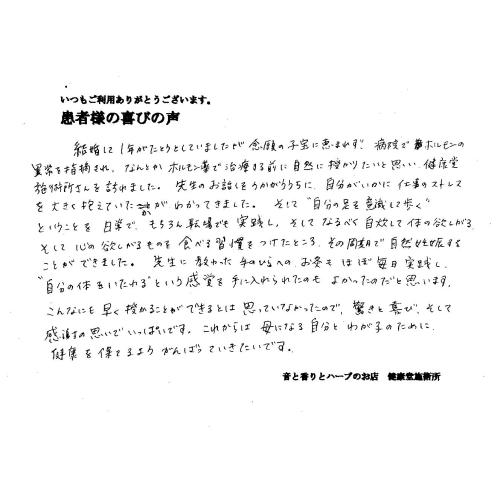 いつもご利用ありがとうございます。
患者様の喜びの声
結婚して1年がたとうとしていましたが念願の子宝に恵まれず、病院でホルモンの
異常を指摘され、なんとかホルモン薬で治療する前に自然に授かりたいと思い、健康堂
施術所さんを訪れました。先生のお話をうかがううちに、自分がいかに仕事のストレス
を大きく抱えていたかがわかってきました。そして"自分の足を意識して歩く"
ということを日常で、もちろん職場でも実践し、そしてなるべく自炊して体の欲しがる
そして心の欲しがるものを食べる習慣をつけたところ、その周期で自然妊娠する
ことができました。先生に教わった手のひらへのお灸もほぼ毎日実践し、
"自分の体をいたわる"という感覚を手に入れられたのもよかったのだと思います。
こんなにも早く授かることができるとは思っていなかったので、驚きと喜び、そして
感謝の思いでいっぱいです。これからは母になる自分とわが子のために、
健康を保てるようがんばっていきたいです。
音と香りとハーブのお店 健康堂施術所